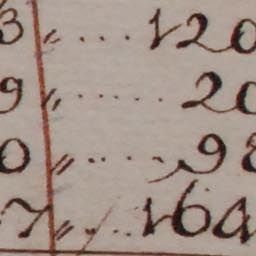 3 〃 .... 120
9 〃 ...... 20
0 〃 ..... 98
7 〃 .... 164